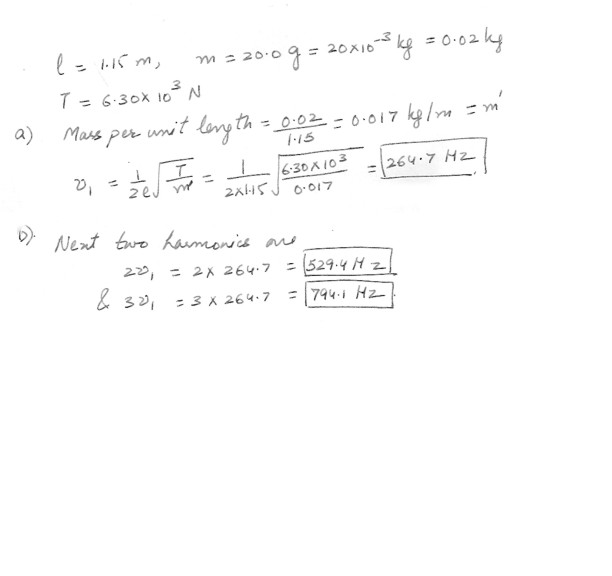 l = 1.15 m, m = 20.0 g = 20×10⁻³ kg = 0.02 kg
T = 6.30×10³ N
a) Mass per unit length = 0.02/1.15 = 0.017 kg/m = m'
ν₁ = 1/2l √(T/m') = 1/(2×1.15) √(6.30×10³/0.017) = 264.7 Hz
b). Next two harmonics are
2ν₁ = 2 × 264.7 = 529.4 Hz
& 3ν₁ = 3 × 264.7 = 794.1 Hz.